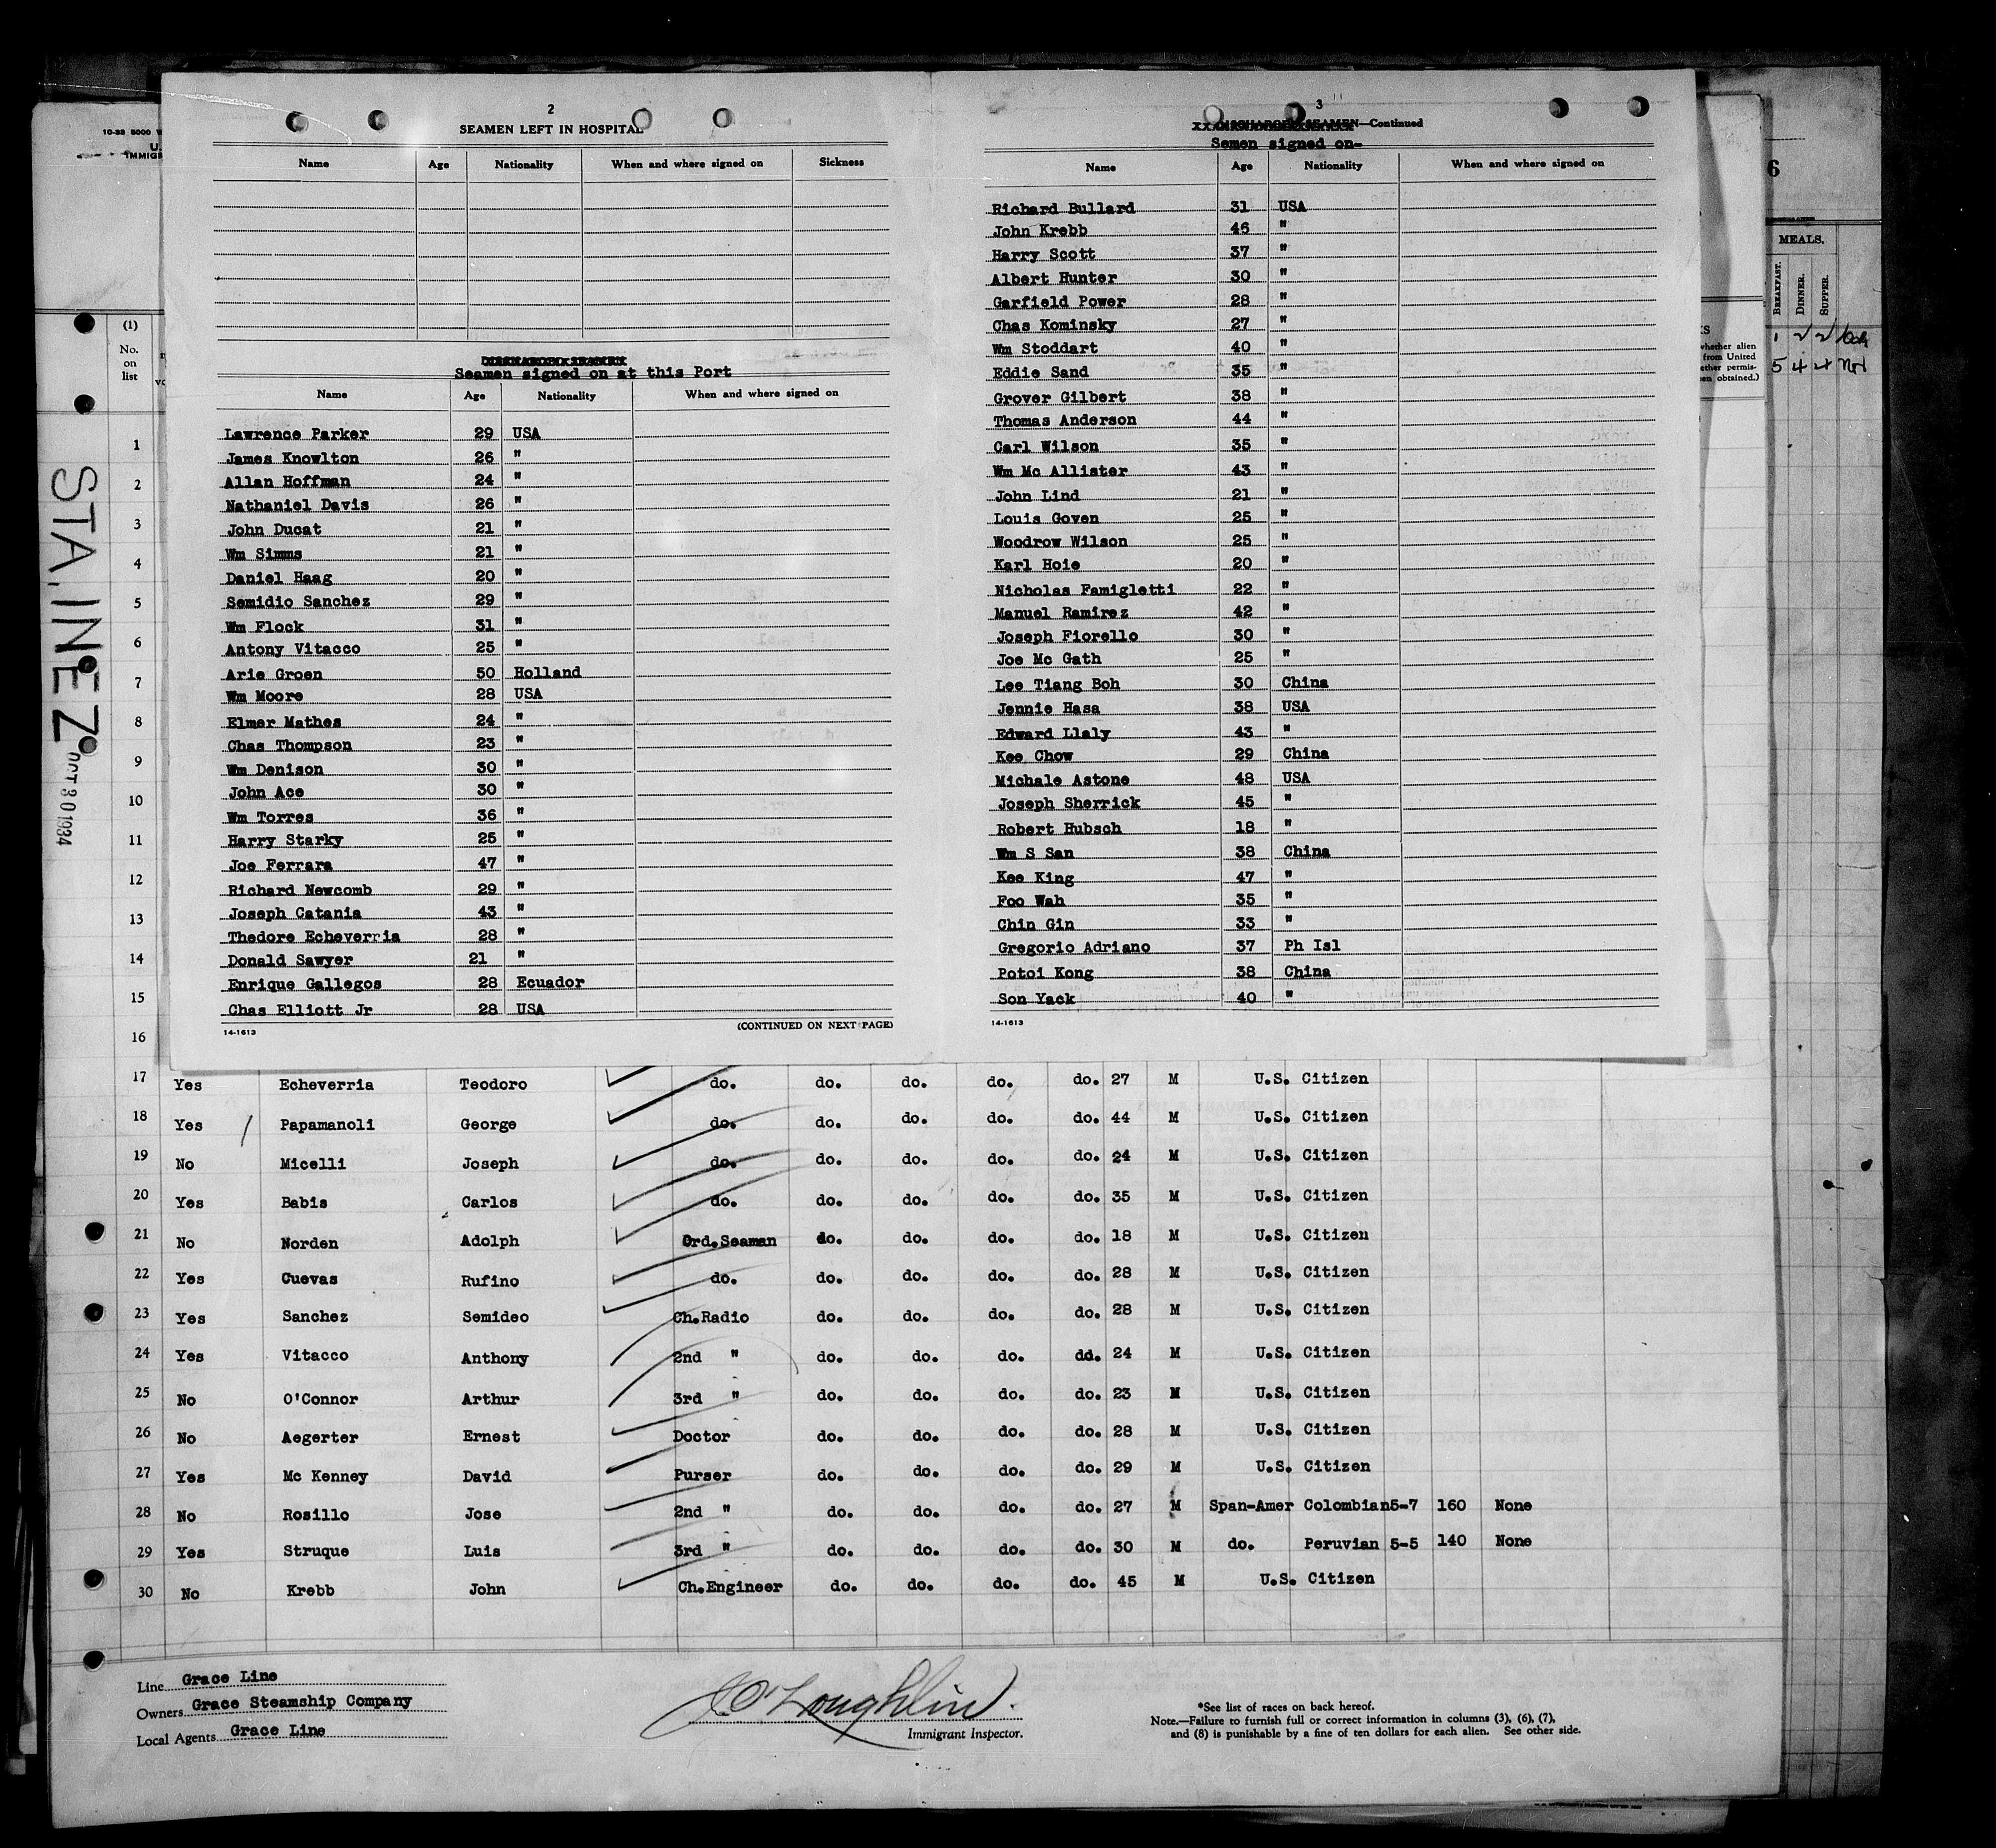 2
SEAMEN LEFT IN HOSPITAL
Name Age Nationality When and where signed on Sickness
Seamen signed on at this Port
Name Age Nationality When and where signed on
Lawrence Parker 29 USA
James Knowlton 26 "
Allan Hoffman 24 "
Nathaniel Davis 26 "
John Ducat 21 "
Wm Simms 21 "
Daniel Haag 20 "
Semidio Sanchez 29 "
Wm Flock 31 "
Antony Vitacco 25 "
Arie Groen 50 Holland
Wm Moore 28 USA
Elmer Mathes 24 "
Chas Thompson 23 "
Wm Denison 30 "
John Ace 30 "
Wm Torres 36 "
Harry Starky 25 "
Joe Ferrara 47 "
Richard Newcomb 29 "
Joseph Catania 43 "
Thedore Echeverria 28 "
Donald Sawyer 21 "
Enrique Gallegos 28 Ecuador
Chas Elliott Jr 28 USA
14-1613 (CONTINUED ON NEXT PAGE)
3
DISCHARGED SEAMEN—Continued
Semen signed on-
Name Age Nationality When and where signed on
Richard Bullard 31 USA
John Krebb 46 "
Harry Scott 37 "
Albert Hunter 30 "
Garfield Power 28 "
Chas Kominsky 27 "
Wm Stoddart 40 "
Eddie Sand 35 "
Grover Gilbert 38 "
Thomas Anderson 44 "
Carl Wilson 35 "
Wm Mc Allister 43 "
John Lind 21 "
Louis Goven 25 "
Woodrow Wilson 25 "
Karl Hoie 20 "
Nicholas Famigletti 22 "
Manuel Ramirez 42 "
Joseph Fiorello 30 "
Joe Mc Gath 25 "
Lee Tiang Boh 30 China
Jennie Hasa 38 USA
Edward Llaly 43 "
Kee Chow 29 China
Michale Astone 48 USA
Joseph Sherrick 45 "
Robert Hubsch 18 "
Wm S San 38 China
Kee King 47 "
Foo Wah 35 "
Chin Gin 33 "
Gregorio Adriano 37 Ph Isl
Potoi Kong 38 China
Son Yack 40 "
14-1613
10-33 5000
U.
IMMIGR
(1)
No.
on
list
1
2
3
4
5
6
7
8
9
10
11
12
13
14
15
16
STA, INEZ
OCT 30 1934
6
MEALS.
BREAKFAST. DINNER. SUPPER.
5 4 4
whether alien
from United
ether permis-
en obtained.)
17 Yes Echeverria Teodoro do. do. do. do. do. 27 M U.S. Citizen
18 Yes Papamanoli George do. do. do. do. do. 44 M U.S. Citizen
19 No Micelli Joseph do. do. do. do. do. 24 M U.S. Citizen
20 Yes Babis Carlos do. do. do. do. do. 35 M U.S. Citizen
21 No Norden Adolph Ord.Seaman do. do. do. do. 18 M U.S. Citizen
22 Yes Cuevas Rufino do. do. do. do. do. 28 M U.S. Citizen
23 Yes Sanchez Semideo Ch.Radio do. do. do. do. 28 M U.S. Citizen
24 Yes Vitacco Anthony 2nd " do. do. do. do. 24 M U.S. Citizen
25 No O'Connor Arthur 3rd " do. do. do. do. 23 M U.S. Citizen
26 No Aegerter Ernest Doctor do. do. do. do. 28 M U.S. Citizen
27 Yes Mc Kenney David Purser do. do. do. do. 29 M U.S. Citizen
28 No Rosillo Jose 2nd " do. do. do. do. 27 M Span-Amer Colombian 5-7 160 None
29 Yes Struque Luis 3rd " do. do. do. do. 30 M do. Peruvian 5-5 140 None
30 No Krebb John Ch.Engineer do. do. do. do. 45 M U.S. Citizen
Line Grace Line
Owners Grace Steamship Company
Local Agents Grace Line
J. O'Loughlin
Immigrant Inspector.
*See list of races on back hereof.
Note.—Failure to furnish full or correct information in columns (3), (6), (7),
and (8) is punishable by a fine of ten dollars for each alien. See other side.